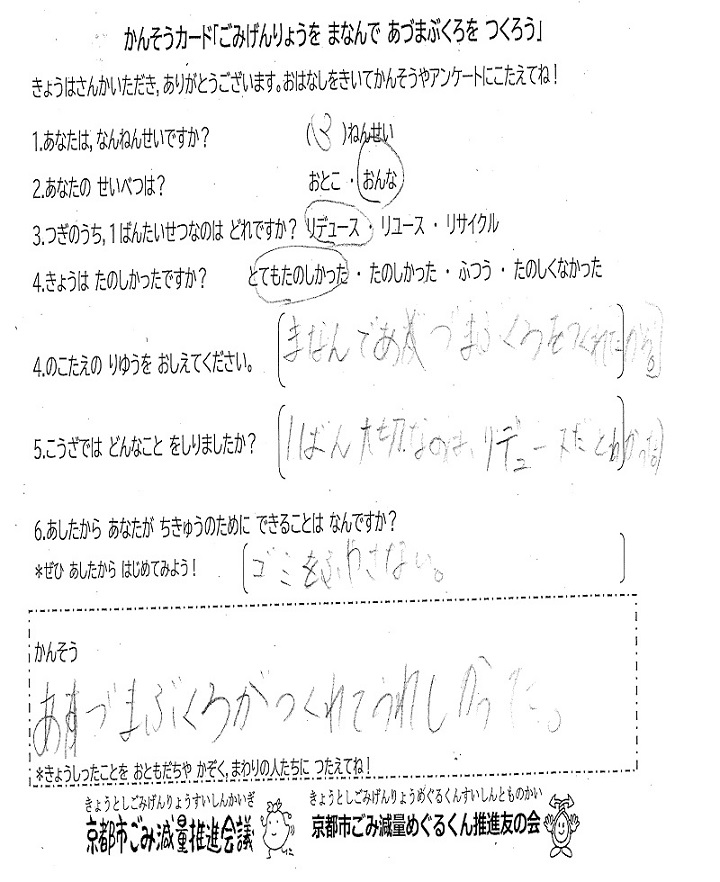 かんそうカード「ごみげんりょうを まなんで あづまぶくろを つくろう」
きょうはさんかいただき,ありがとうございます。おはなしをきいてかんそうやアンケートにこたえてね!
1.あなたは,なんねんせいですか? (3)ねんせい
2.あなたの せいべつは? おとこ ・ おんな
3.つぎのうち,1ばんたいせつなのは どれですか? リデュース ・ リユース ・ リサイクル
4.きょうは たのしかったですか? とてもたのしかった ・ たのしかった ・ ふつう ・ たのしくなかった
4.のこたえの りゆうを おしえてください。 まなんであづまぶくろをつくれたから。
5.こうざでは どんなこと をしりましたか? 1ばん大切なのは、リデュースだとわかった
6.あしたから あなたが ちきゅうのために できることは なんですか?
*ぜひ あしたから はじめてみよう! ゴミをふやさない。
かんそう
あづまぶくろがつくれてうれしかった。
*きょうしったことを おともだちや かぞく,まわりの人たちに つたえてね!
きょうとしごみげんりょうすいしんかいぎ きょうとしごみげんりょうめぐるくんすいしんとものかい
京都市ごみ減量推進会議 京都市ごみ減量めぐるくん推進友の会